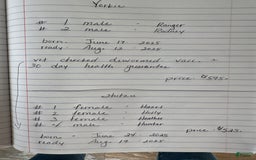 Yorkie
# 1 male - Ranger
# 2 male - Rainey
born - June 17 2025
ready - Aug 12 2025
vet checked dewormed vacc. +
30 day health guarantee
price $595.-
# 1 female - Hazel
# 2 female - Holly
# 3 female - Heather
# 4 male - Hunter
born - June 24 2025
price $525.-
ready Aug 19 2025